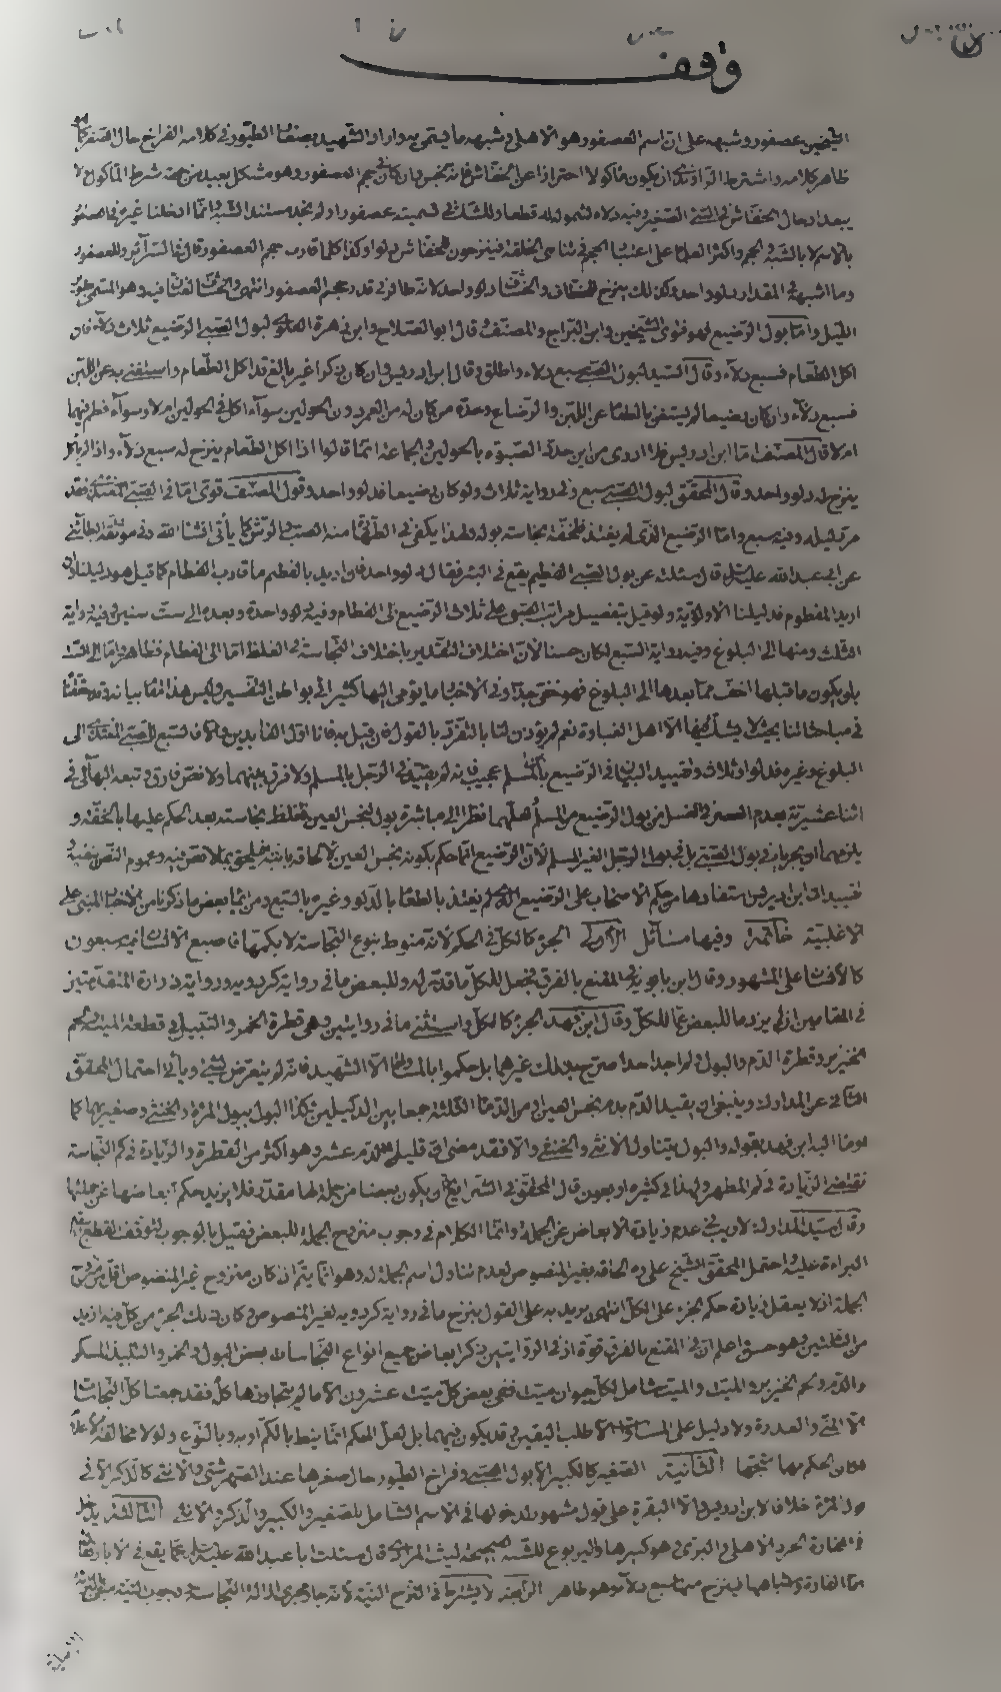 وقف
الشيخين عصفور وشبهه على ان اسم العصفور هو الاهلي وشبهه ما يتمى به واراد الشهيد بصفة الطيور في كلامه الفراخ حال الصغر كما
ظاهر كلامه واشترط الراوندي ان يكون مأكولا احترازا عن الخفاش فانه نجس وان كان في حجم العصفور وهو مشكل بعيد من جهة شرط المأكول لا
يبعد ادخال الخفاش في الشئ الصغير وفيه دلاء لشموله له قطعا وللشك في تسميته عصفورا ولم نجد مستند الشبه وانما ادخلنا غيره في
بالاسم لا بالشبه في الحجم واكثر العلماء على اعتبار الحجم في تناهي الخلقة فينزحون للخفاش دلوا وكذا كلما قارب حجم العصفور قال في السرائر والعصفور
وما اشبهه في المقدار دلو واحد وكذلك ينزح للخطاف والخشاف دلو واحد لانه طائر في قدر حجم العصفور انتهى
الليل واما بول الرضيع فهو فتوى الشيخين وابن البراج والمصنف وقال ابو الصلاح وابن زهرة لبول الصبي الرضيع ثلاث دلاء فان
اكل الطعام فسبع دلاء وقال السيد لبول الصبي سبع دلاء واطلق وقال ابن ادريس ان كان ذكرا غير بالغ قد اكل الطعام واستغنى به عن اللبن
فسبع دلاء وان كان رضيعا لم يستغن بالطعام عن اللبن والرضاع وحده من كان له من العمر دون الحولين سواء اكل في الحولين ام لا وسواء فطم فيهما
ام لا قال المصنف اما ابن ادريس فلا ادري من اين حد له الصبوة بالحولين والجماعة انما قالوا اذا اكل الطعام ينزح له سبع دلاء واذا لم ياكل
ينزح له دلو واحد وقال المحقق لبول الصبي سبع وفي رواية ثلاث ولو كان رضيعا فدلو واحد وقول المصنف قوي اما في الصبي فقد
مر دليله وفيه سبع واما الرضيع الذي لم يغتذ فلخفة نجاسة بوله ولهذا يكفي في الطهارة منه الصب والرش كما يأتي انشاء الله وفي موثقة
عن ابي عبد الله عليه السلام قال سئلته عن بول الصبي الفطيم يقع في البئر فقال دلو واحد فان اريد بالفطيم ما قارب الفطام كما قيل هو دليلنا وان
اريد المفطوم فدليلنا الاولوية ولو قيل بتفصيل مراتب الصبي على ثلاث الرضيع الى الفطام وفيه دلو واحدة وبعده الى ست سنين وفيه رواية
الثلث ومنها الى البلوغ وفيه رواية السبع لكان حسنا لأن اختلاف التقدير باختلاف النجاسة في الغلظ اما الى الفطام فظاهر واما الى الست
بلو يكون ما قبلها اخف مما بعدها الى البلوغ فهو خفي جدا وفي الاخبار ما يؤمي اليها كثيرا في بواطن التفسير وليس هذا مقام بيانه وقد حققنا
في مباحثاتنا بحيث لا يشك فيها الا اهل الغباوة نعم لم يؤذن لنا بالتفرد بالقول فان قيل به فانا اول القايلين والا فالسبع للصبي المغتذي الى
البلوغ وغيره فدلو او ثلاث وتقييد البيان في الرضيع بابن المسلم عجيب فانه لم يقيد في الرجل بالمسلم ولا فرق بينهما ولا نص فارق وتبعه البهائي في
اثنا عشريته بعدم العصر في الغسل من بول الرضيع من المسلم نظرا الى مباشرة بول نجس العين فتغلظ نجاسته بعد الحكم عليها بالخفة و
يلزمهما ان يجريا في بول الصبي بل في بول الرجل الغير المسلم لأن الرضيع انما حكم بكونه نجس العين لالحاقه بابيه فليلحق بما لا نص فيه وعموم النص ينفيه
تقييدات ابن ادريس استفادها من حكم الاصحاب على الرضيع الذي لم يغتذ بالطعام بالدلو وغيره بالسبع ومن ايماء بعض ما ذكرنا من الاخبار المبنى على
الاغلبية خاتمة وفيها مسائل الاولى الجزء كالكل في الحكم لانه منوط بنوع النجاسة لا بكمها فاصبع الانسان فيه سبعون
كالانسان على المشهور وقال ابن بابويه في المقنع بالفرق فجعل للكل ما قدر له وللبعض ما في رواية كردويه ورواية زرارة المتقدمتين
في المقامين ان لم يزد ما للبعض عما للكل وقال ابن فهد الجزء كالكل واستثنى ما في روايتين وهي قطرة الخمر والنبيذ في قطعة الميت ولحم
الخنزير وقطرة الدم والبول ولم اجد احدا صرح بذلك غيرهما بل حكموا بالمساواة الا الشهيد فانه لم يتعرض لشئ ويأتي احتمال المحقق
الثاني عن المدارك وينبغي ان يقيد الدم بدم نجس العين او من الدماء الثلثة جمعا بين الدليلين وكذا البول ببول المرأة والخنثى وصغيرهما كما
اومأ اليه ابن فهد بقوله والبول يتناول الانثى والخنثى والا فقد مضى ان قليل الدم عشر وهو اكثر من القطرة والزيادة في كم النجاسة
تقتضي الزيادة في كم المطهر ولهذا في كثيره اربعون قال المحقق في الشرايع او يكون بعضا من جملة لها مقدر فلا يزيد حكم ابعاضها عن جملتها
وقال سيد المدارك لا ريب في عدم زيادة الابعاض عن الجملة وانما الكلام في وجوب منزوح الجملة للبعض فقيل بالوجوب لتوقف القطع بيقين
البراءة عليه واحتمل المحقق الشيخ علي ره الحاقه بغير المنصوص لعدم تناول اسم الجملة له وهو انما يتم ان كان منزوح غير المنصوص اقل من منزوح
الجملة اذ لا يعقل زيادة حكم الجزء على الكل انتهى يريد به على القول بنزح ما في رواية كردويه لغير المنصوص وكان ذلك الجزء من كل فيه ازيد
من الثلثين وهو حسن اعلم ان في المقنع بالفرق قوة اذ في الروايتين ذكر ابعاض جميع انواع النجاسات بعض البول والخمر والنبيذ المسكر
والدم ولحم الخنزير والميت والميت شامل لكل حيوان ميت ففي بعض كل ميت عشرون الا ما لم يتجاوزها كله فقد جمعتا كل النجاسات
الا المني والعذرة ولا دليل على المساواة الا طلب اليقين وقد يكون فيهما بل لعل الحكم انما نيط بالكم او به وبالنوع ولولا مخالفة الاعلام
لكان الحكم بها متجها الثانية الصغير كالكبير الا بول الصبي وفراخ الطيور حال صغرها عند الصهرشتي والانثى كالذكر الا في
بول المرأة خلافا لابن ادريس والا البقرة على قول مشهور لدخولها في الاسم الشامل للصغير والكبير والذكر والانثى الثالثة
في الفأرة الجرذ الاهلي والبري وهو كبيرها واليربوع للشبه لصحيحة ليث المرادي قال سئلت ابا عبد الله عليه السلام عما يقع في الابار فقال
اما الفارة واشباهها فينزح منها سبع دلاء وهو ظاهر الرابعة لا يشترط في النزح النية لانه جار مجرى ازالة النجاسة